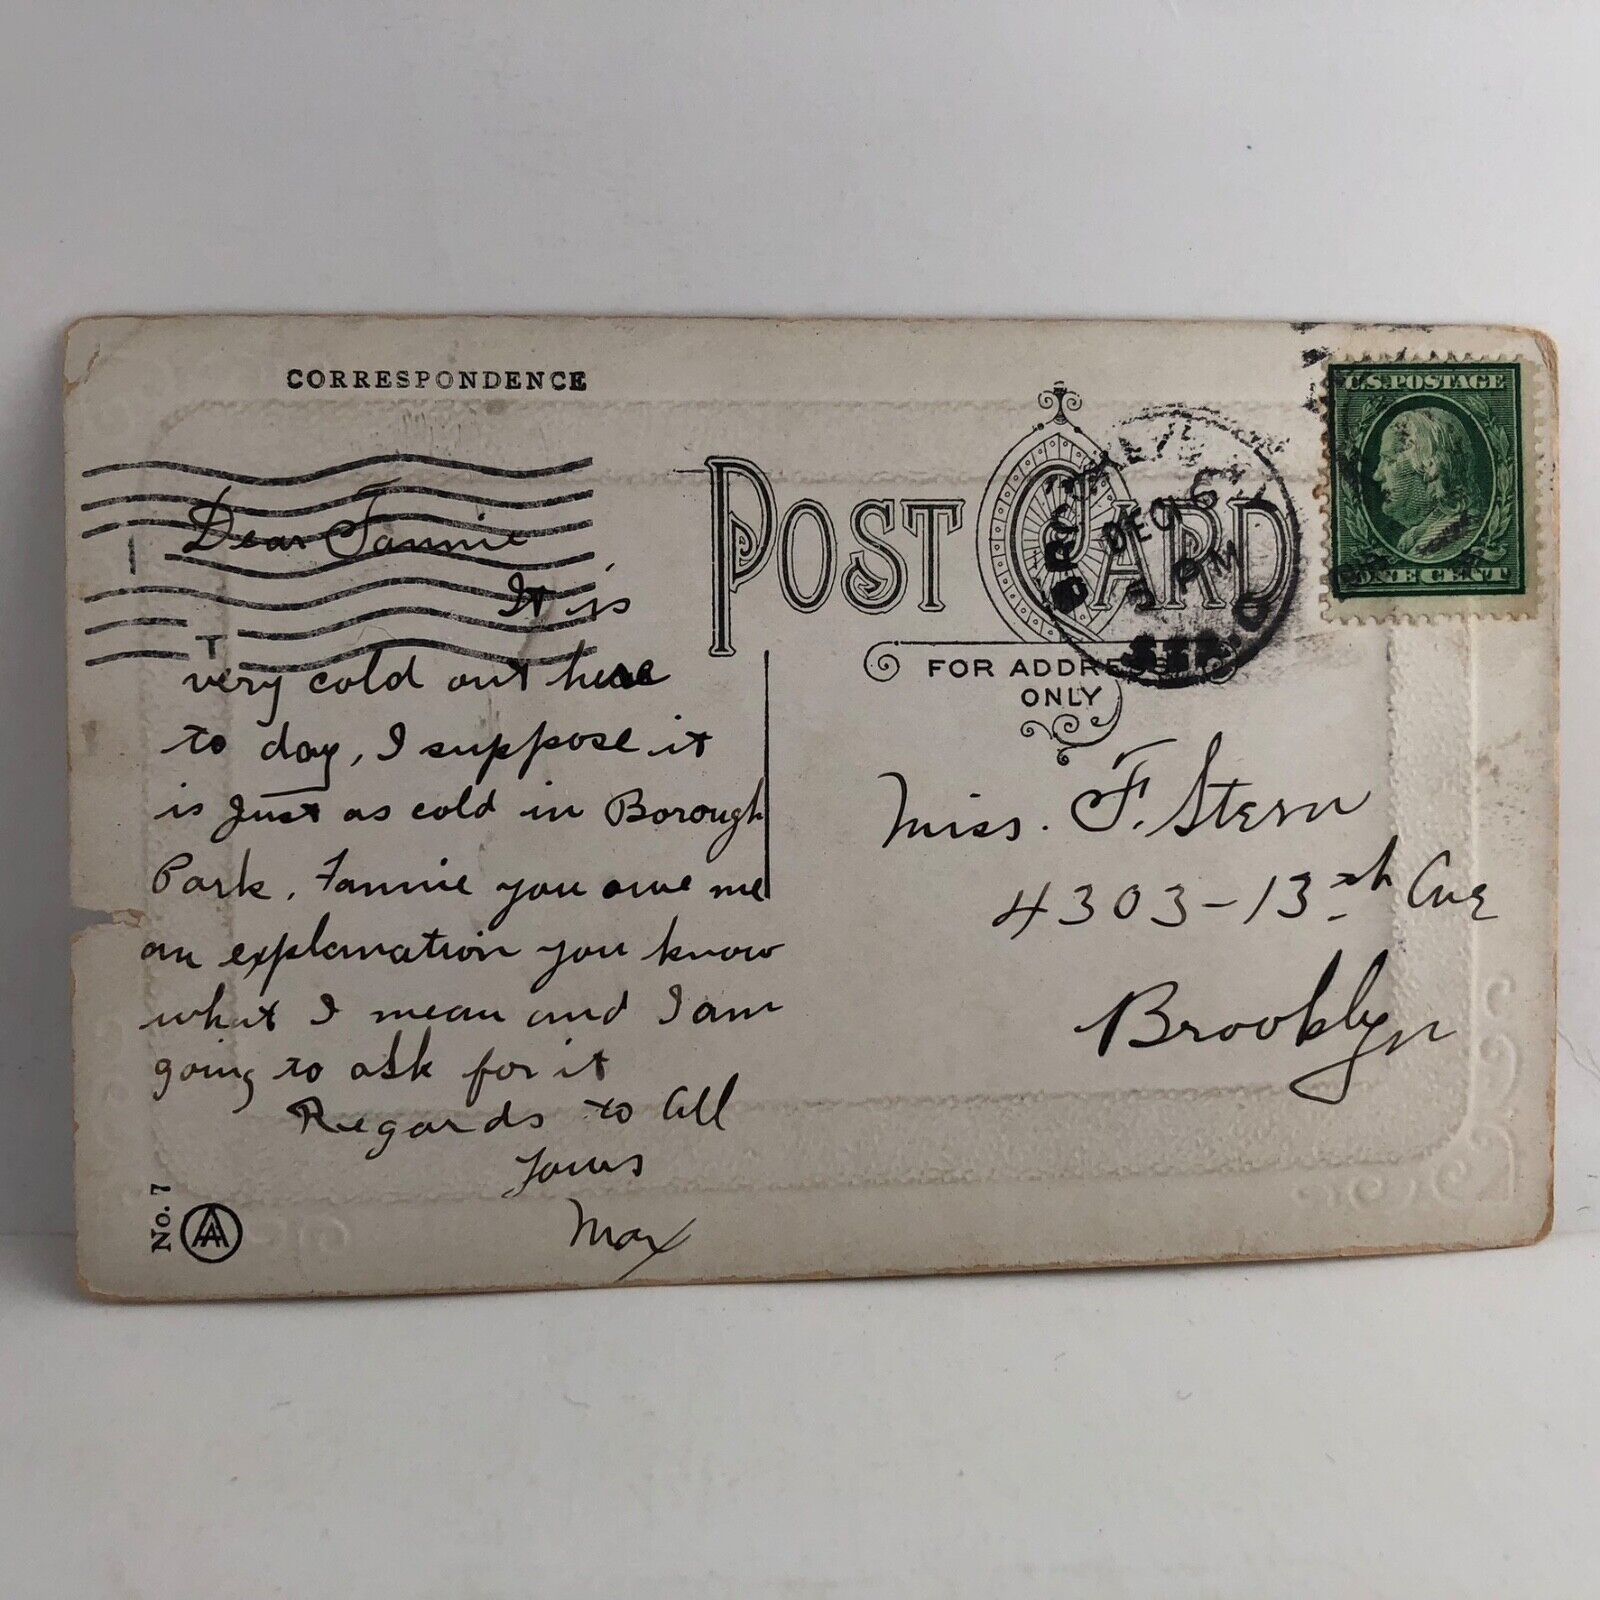 CORRESPONDENCE
Dear Fannie
It is
very cold out here
to day, I suppose it
is just as cold in Borough
Park. Fannie you owe me
an explanation you know
what I mean and I am
going to ask for it
Regards to All
Yours
Max
No. 7
AA
POST CARD
FOR ADDRESS
ONLY
BROOKLYN
DEC 6
3 PM
STA. O
U.S. POSTAGE
ONE CENT
Miss. F. Stern
4303-13th Ave
Brooklyn